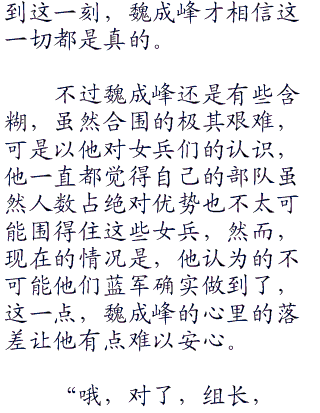 到这一刻，魏成峰才相信这
一切都是真的。
不过魏成峰还是有些含
糊，虽然合围的极其艰难，
可是以他对女兵们的认识，
他一直都觉得自己的部队虽
然人数占绝对优势也不太可
能围得住这些女兵，然而，
现在的情况是，他认为的不
可能他们蓝军确实做到了，
这一点，魏成峰的心里的落
差让他有点难以安心。
“哦，对了，组长，